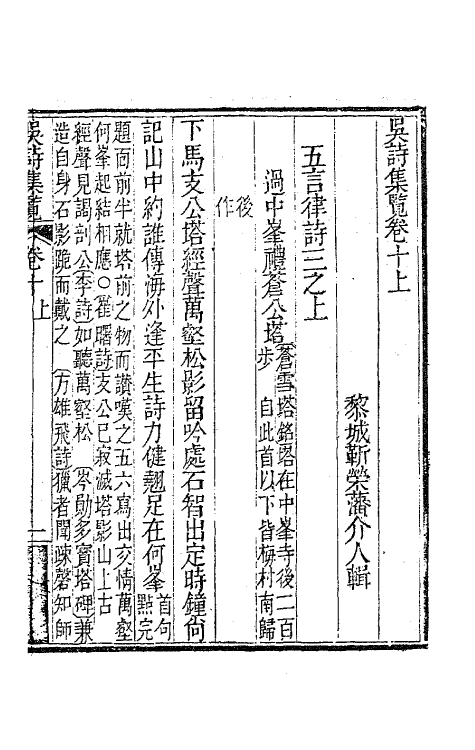 吳詩集覽卷十上
黎城靳榮藩介人輯
五言律詩三之上
過中峯禮蒼公塔 蒼雪塔銘塔在中峯寺後二百
步 自此首以下皆梅村南歸
後
作
下馬支公塔經聲萬壑松影留吟處石智出定時鐘尙
記山中約誰傳海外逢平生詩力健翹足在何峯 首句
點完
題面前半就塔前之物而讚嘆之五六寫出交情萬壑
何峯起結相應○崔曙詩支公已寂滅塔影山上古
經聲見謁剖公李詩如聽萬壑松 岑勛多寶塔碑兼
造自身石影跪而戴之 方雄飛詩獵者聞疎磬知師
吳詩集覽 卷十上 一